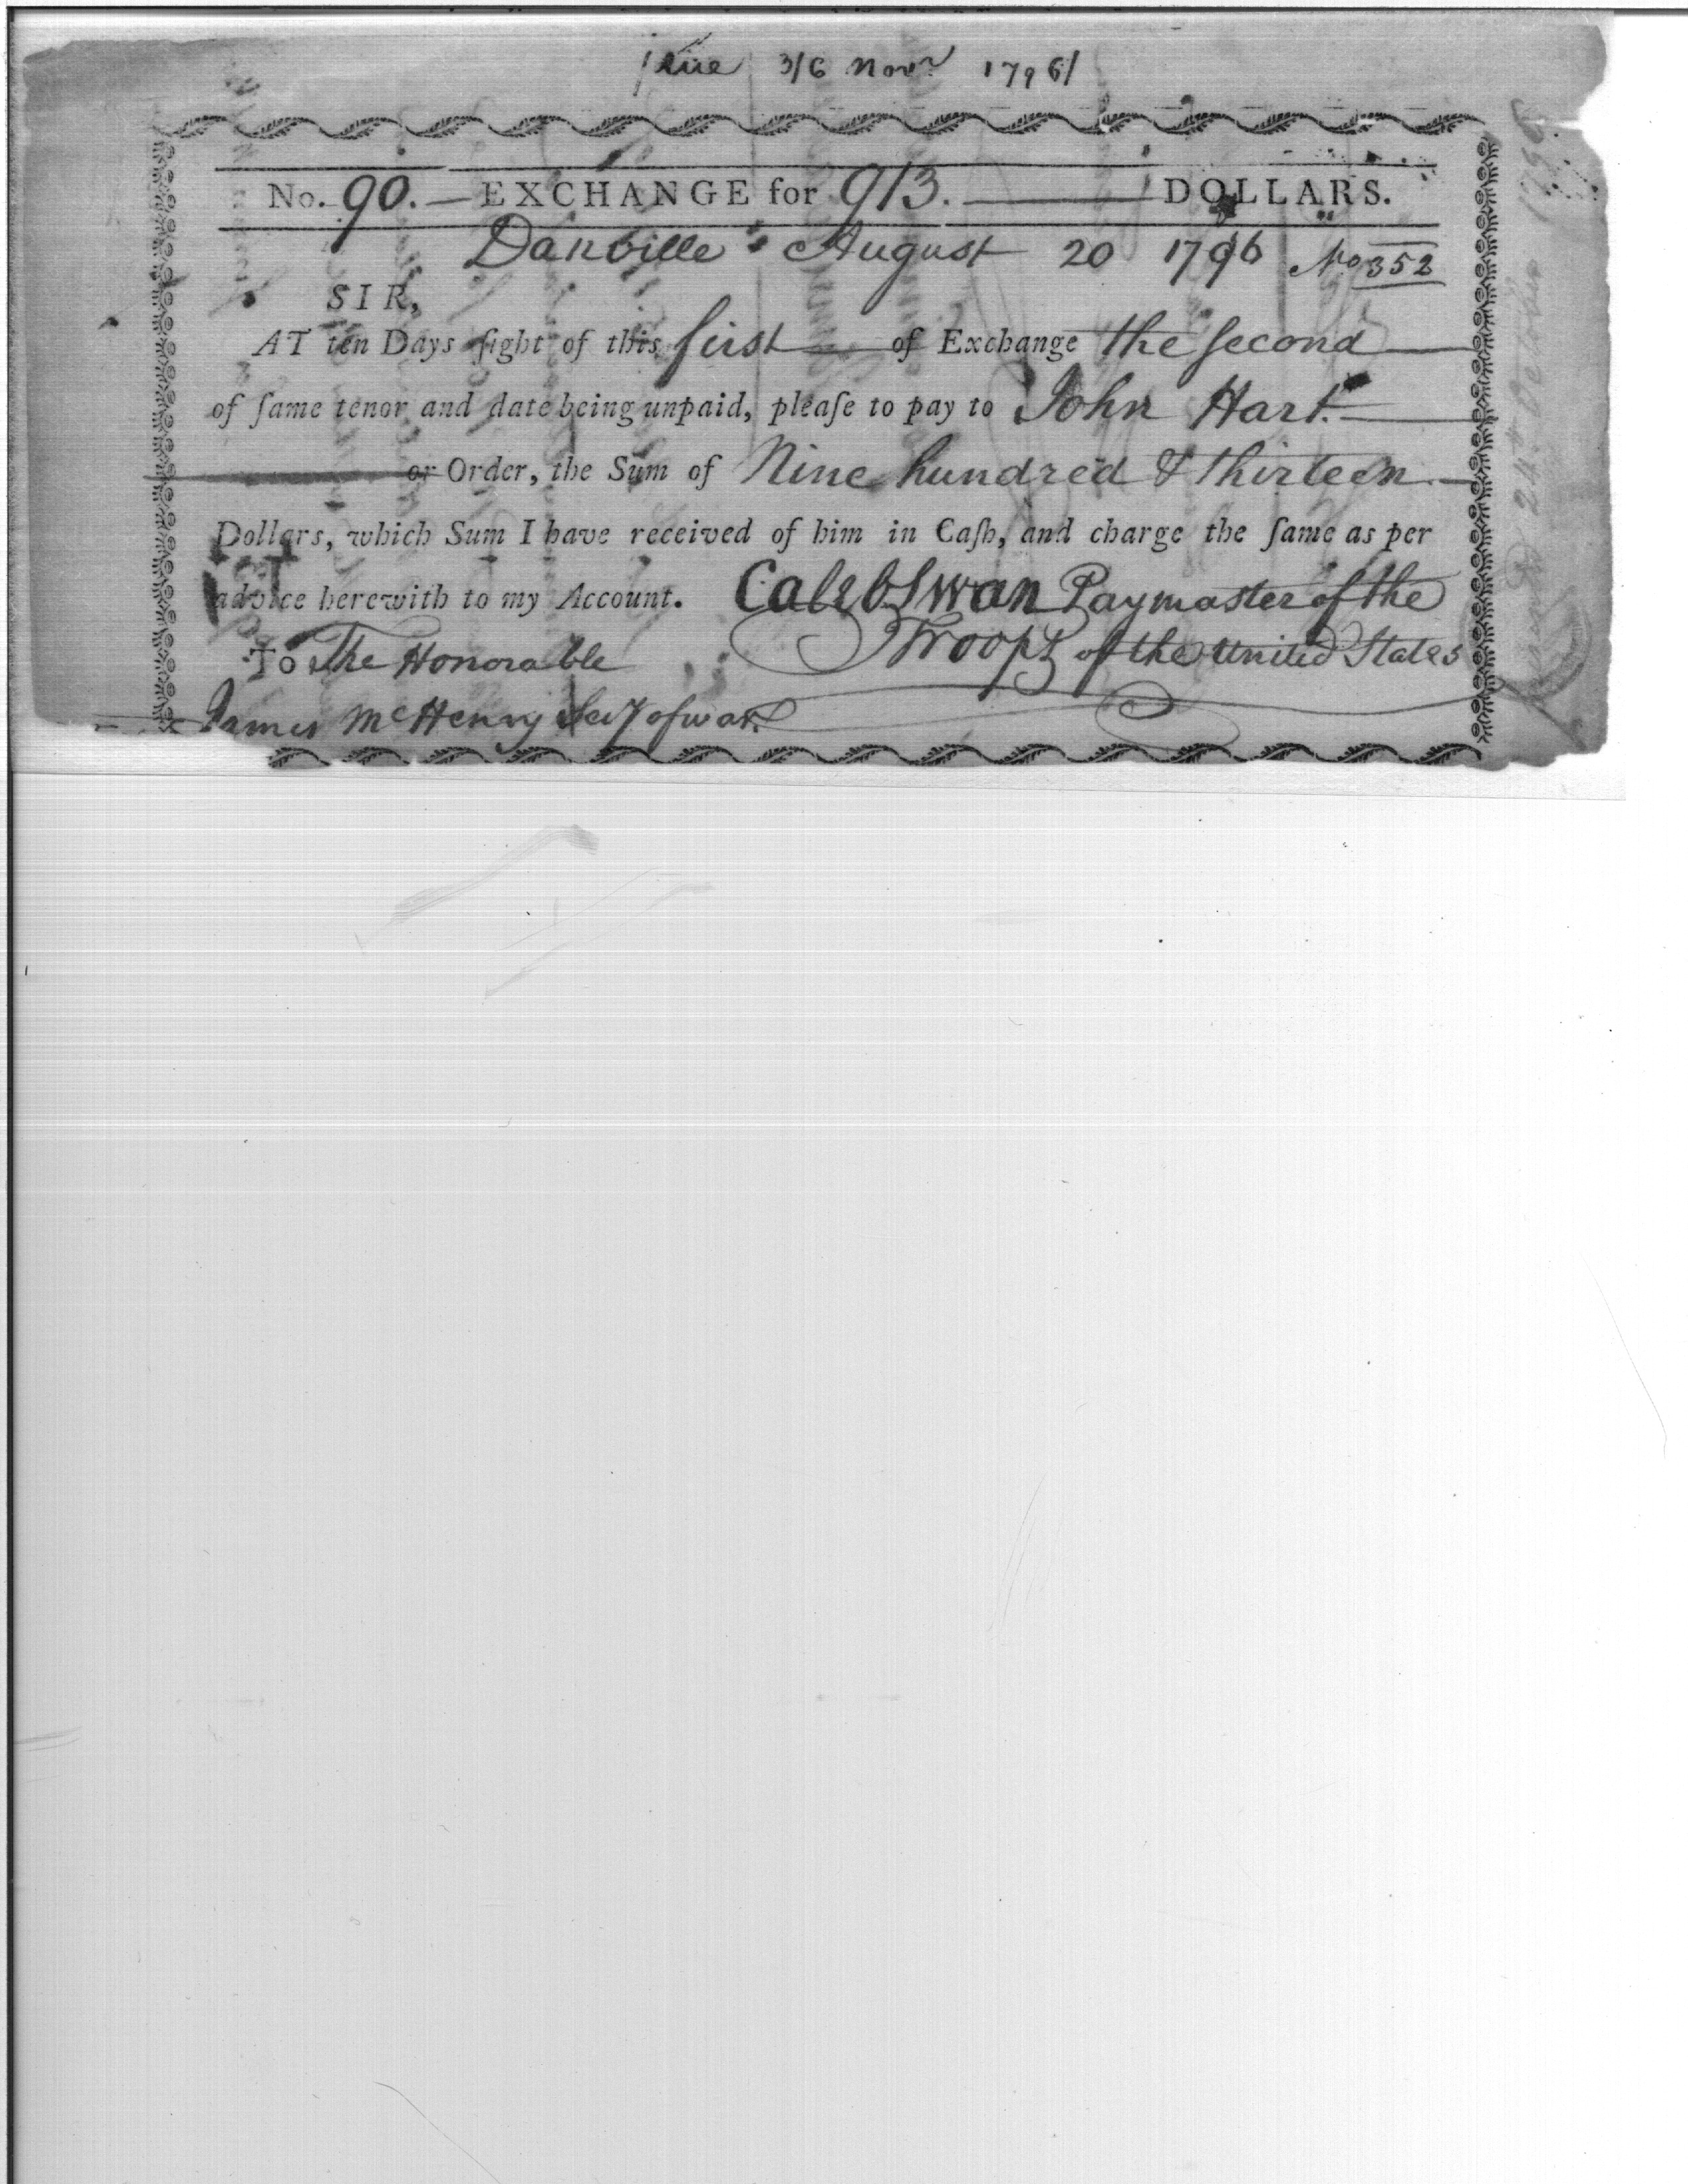 due 3/6 Novr 1796
No. 90. — EXCHANGE for 913. DOLLARS.
Danville August 20 1796 No 352
SIR,
AT ten Days ſight of this first of Exchange the second
of ſame tenor and date being unpaid, pleaſe to pay to John Hart.
or Order, the Sum of Nine hundred & thirteen.
Dollars, which Sum I have received of him in Caſh, and charge the ſame as per
advice herewith to my Account. Caleb Swan Paymaster of the
Troops of the United States
To The Honorable
James McHenry Secy of war.
24th October 1796